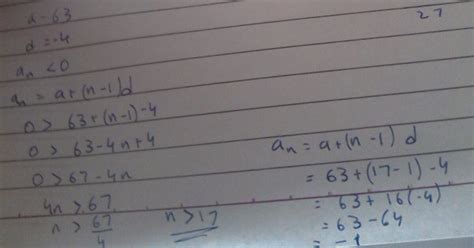 27
a - 63
d = -4
aₙ < 0
aₙ = a+(n-1)d
0 > 63+(n-1)-4
0 > 63-4n+4
0 > 67-4n
4n > 67
n > 67/4
n > 17
aₙ = a+(n-1) d
= 63+(17-1)-4
= 63+16(-4)
= 63-64
= -1